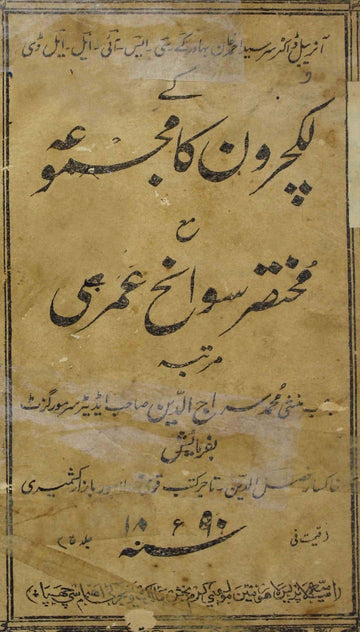 آنریبل ڈاکٹر سر سید احمد خان بہادر کے۔سی۔ایس۔آئی۔ایل۔ایل ڈی
کے
لکچرون کا مجموعہ
مع
مختصر سوانح عمری
مرتبہ
منشی محمد سراج الدین صاحب اڈیٹر سرمور گزٹ
بفرمایش
خاکسار فضل الدین۔تاجر کتب قومی لاہور بازار کشمیری
سنہ ۱۸۹۰ء